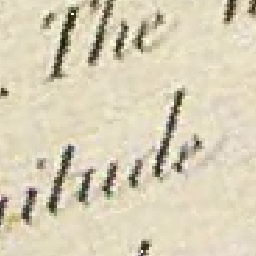 The
itude